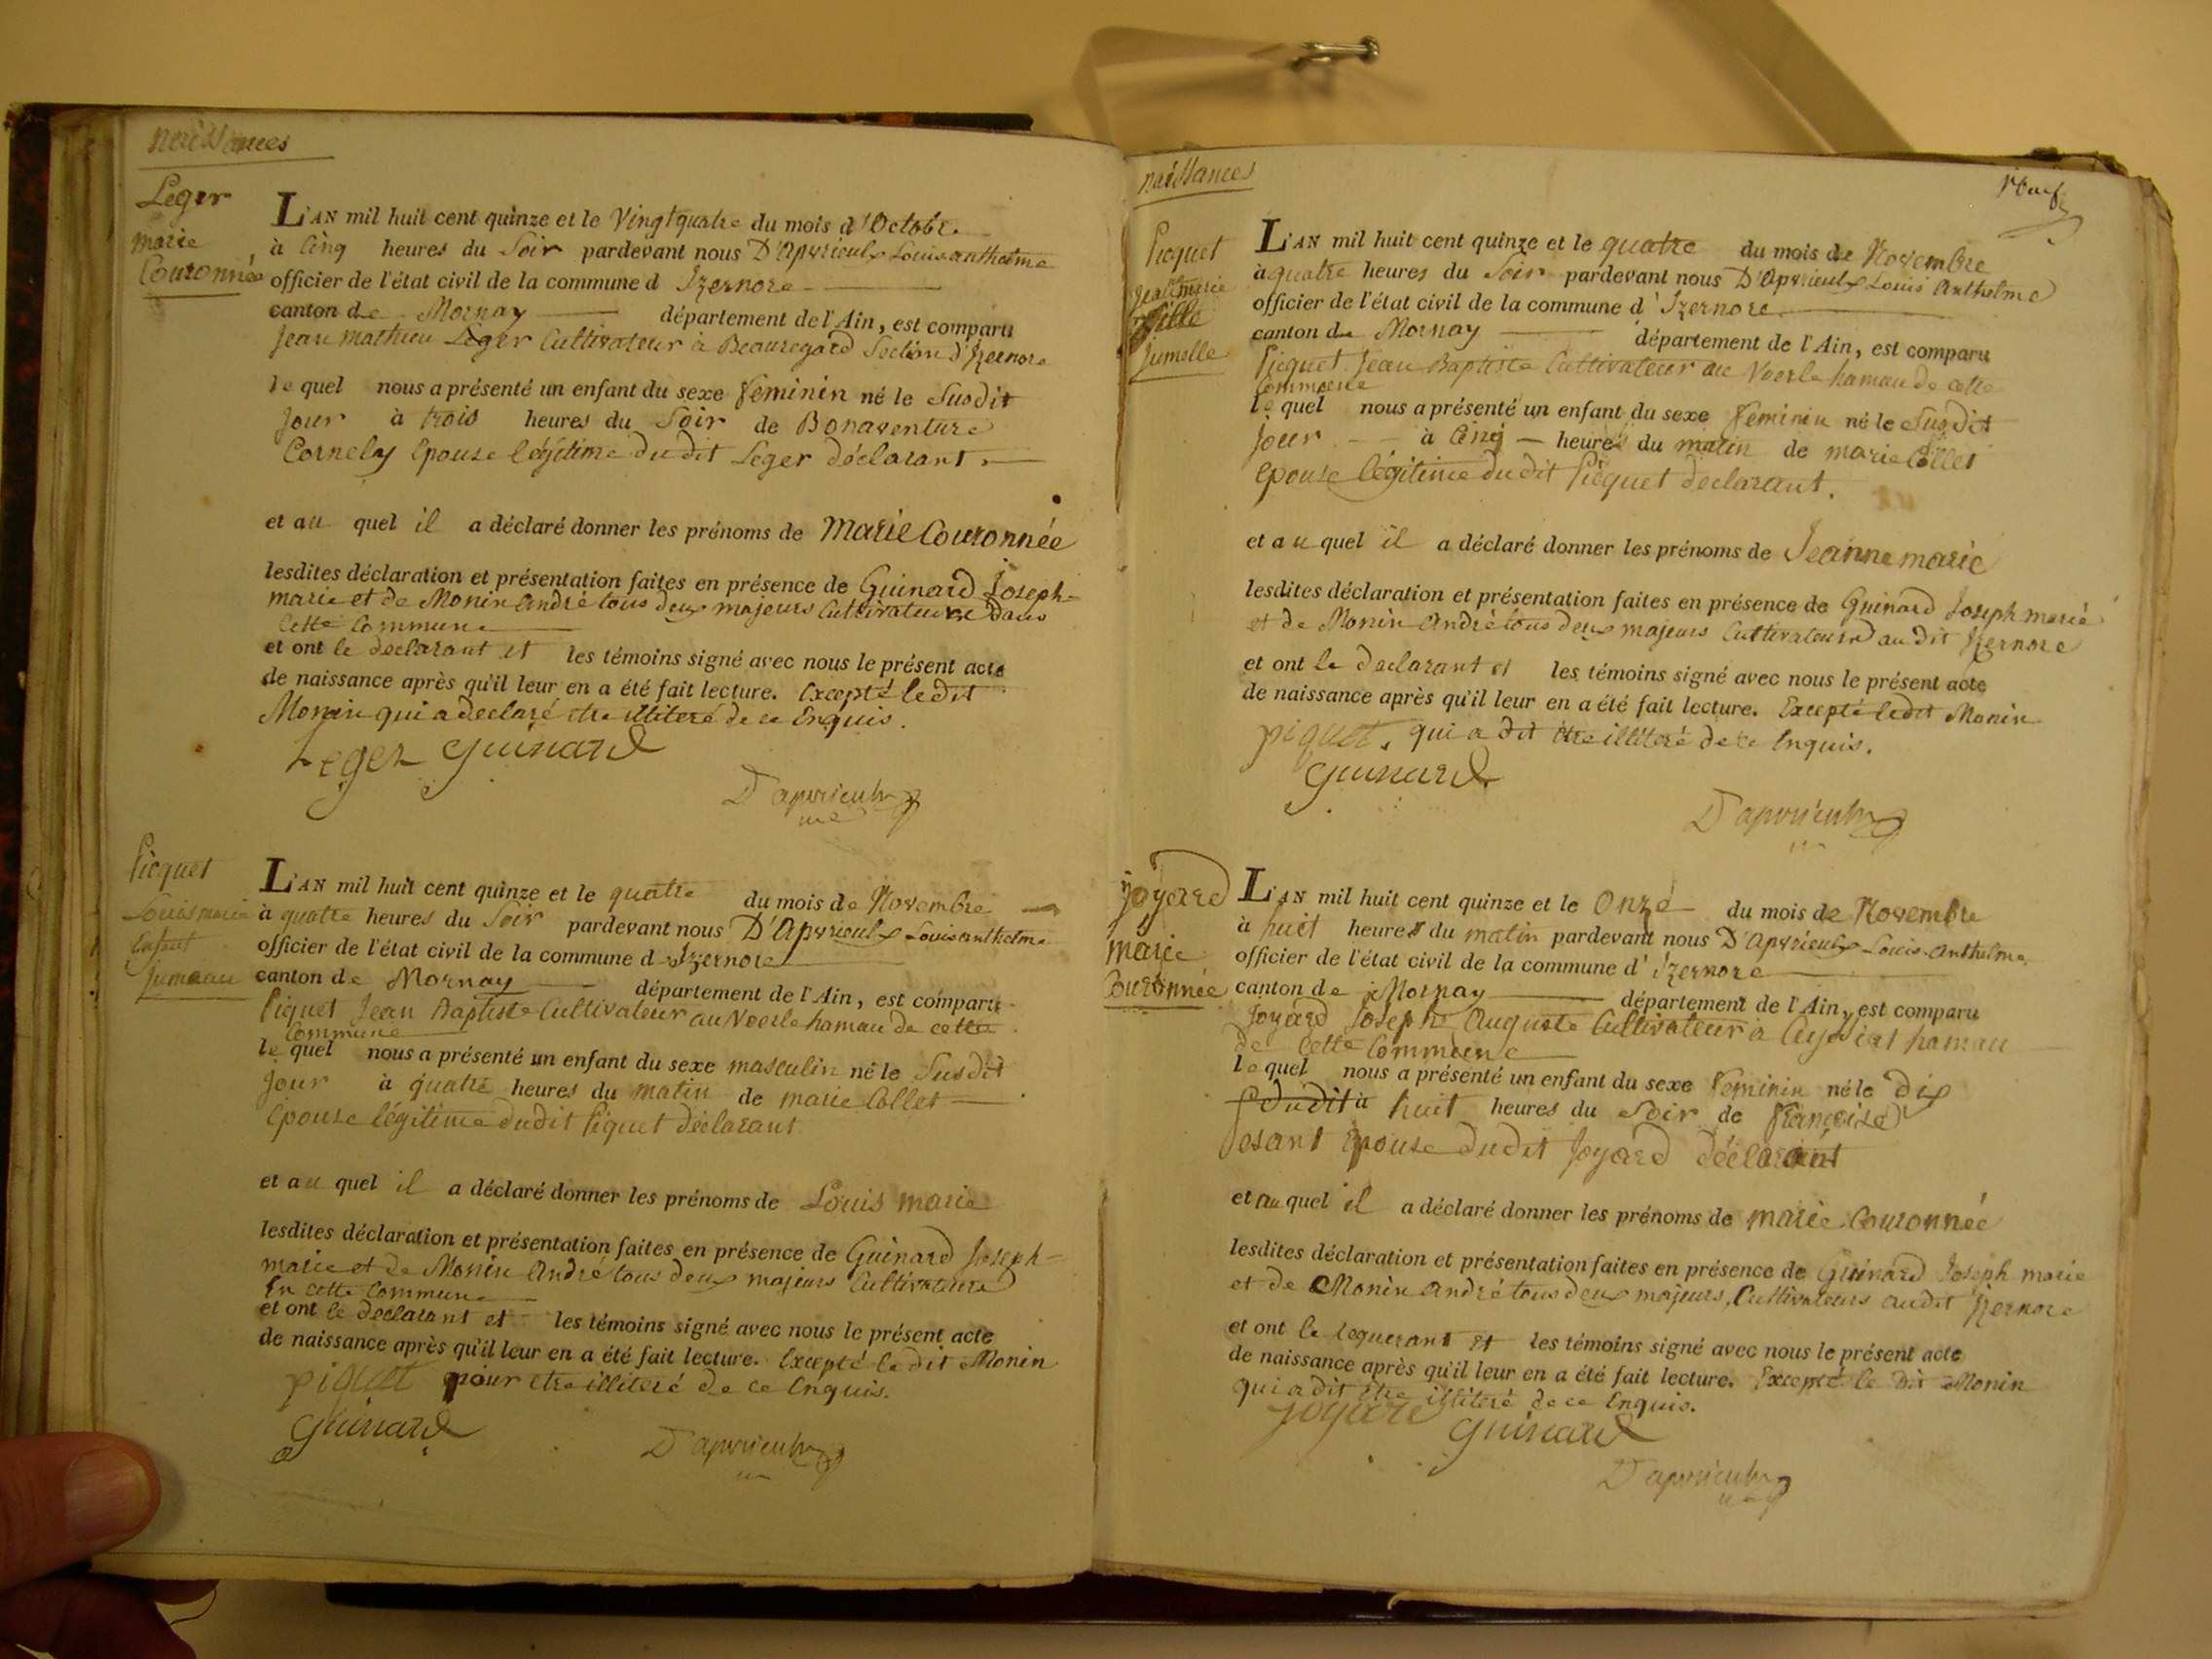 naissances
Leger
marie
Couronnée
L'AN mil huit cent quinze et le Vingtquatre du mois d'Octobre
à Cinq heures du Soir pardevant nous D'Apvrieulx Louis anthelme
officier de l'état civil de la commune d Izernore
canton de Mornay département de l'Ain, est comparu
Jean mathieu Léger Cultivateur a Beauregard Section d'Izernore
le quel nous a présenté un enfant du sexe feminin né le Susdit
Jour à trois heures du Soir de Bonaventure
Cornely Epouse légitime du dit Leger déclarant.
et au quel il a déclaré donner les prénoms de Marie Couronnée
lesdites déclaration et présentation faites en présence de Guinard Joseph-
marie et de Monin André tous deux majeurs Cultivateurs dans
Cette Commune
et ont le declarant et les témoins signé avec nous le présent acte
de naissance après qu'il leur en a été fait lecture. Excepté le dit
Monin qui a declaré etre illiteré de ce Enquis.
Leger Guinard
D'apvrieulx
Picquet
Louis marie
Enfant
jumeau
L'AN mil huit cent quinze et le quatre du mois de Novembre
à quatre heures du Soir pardevant nous D'Apvrieulx Louis anthelme
officier de l'état civil de la commune d Izernore
canton de Mornay département de l'Ain, est comparu
Piquet Jean Baptiste Cultivateur au Voerle hamau de cette
Commune
le quel nous a présenté un enfant du sexe masculin né le Susdit
Jour à quatre heures du matin de marie Collet
Epouse légitime dudit Piquet déclarant
et au quel il a déclaré donner les prénoms de Louis marie
lesdites déclaration et présentation faites en présence de Guinard Joseph-
marie et de Monin André tous deux majeurs Cultivateurs
En cette Commune
et ont le declarant et les témoins signé avec nous le présent acte
de naissance après qu'il leur en a été fait lecture. Excepté le dit Monin
piquet pour etre illiteré de ce Enquis.
Guinard
D'apvrieulx
naissances
Picquet
Jeanne marie
fille
jumelle
L'AN mil huit cent quinze et le quatre du mois de Novembre
à quatre heures du Soir pardevant nous D'Apvrieulx Louis Anthelme
officier de l'état civil de la commune d'Izernore
canton de Mornay département de l'Ain, est comparu
Picquet Jean Baptiste Cultivateur au Voerle hamau de cette
Commune
le quel nous a présenté un enfant du sexe feminin né le Susdit
Jour à Cinq heures du matin de marie Collet
Epouse légitime du dit Picquet declarant.
et au quel il a déclaré donner les prénoms de Jeanne marie
lesdites déclaration et présentation faites en présence de Guinard Joseph marie
et de Monin André tous deux majeurs Cultivateurs au dit Izernore
et ont le declarant et les témoins signé avec nous le présent acte
de naissance après qu'il leur en a été fait lecture. Excepté ledit Monin
piquet. qui a dit être illiteré de ce Enquis.
Guinard
D'apvrieulx
joyard
marie
Couronnée
L'AN mil huit cent quinze et le Onze du mois de Novembre
à huit heures du matin pardevant nous D'Apvrieulx Louis-Anthelme
officier de l'état civil de la commune d'Izernore
canton de Mornay département de l'Ain, est comparu
Joyard Joseph Auguste Cultivateur à Ceyssiat hamau
de Cette Commune
le quel nous a présenté un enfant du sexe feminin né le dix
dudit à huit heures du Soir de Françoise
Jesant Epouse dudit Joyard déclarant
et au quel il a déclaré donner les prénoms de marie Couronnée
lesdites déclaration et présentation faites en présence de Guinard Joseph marie
et de Monin André tous deux majeurs, Cultivateurs audit Izernore
et ont le requerant et les témoins signé avec nous le présent acte
de naissance après qu'il leur en a été fait lecture. Excepté le dit Monin
qui a dit être illiteré de ce Enquis.
joyard Guinard
D'apvrieulx